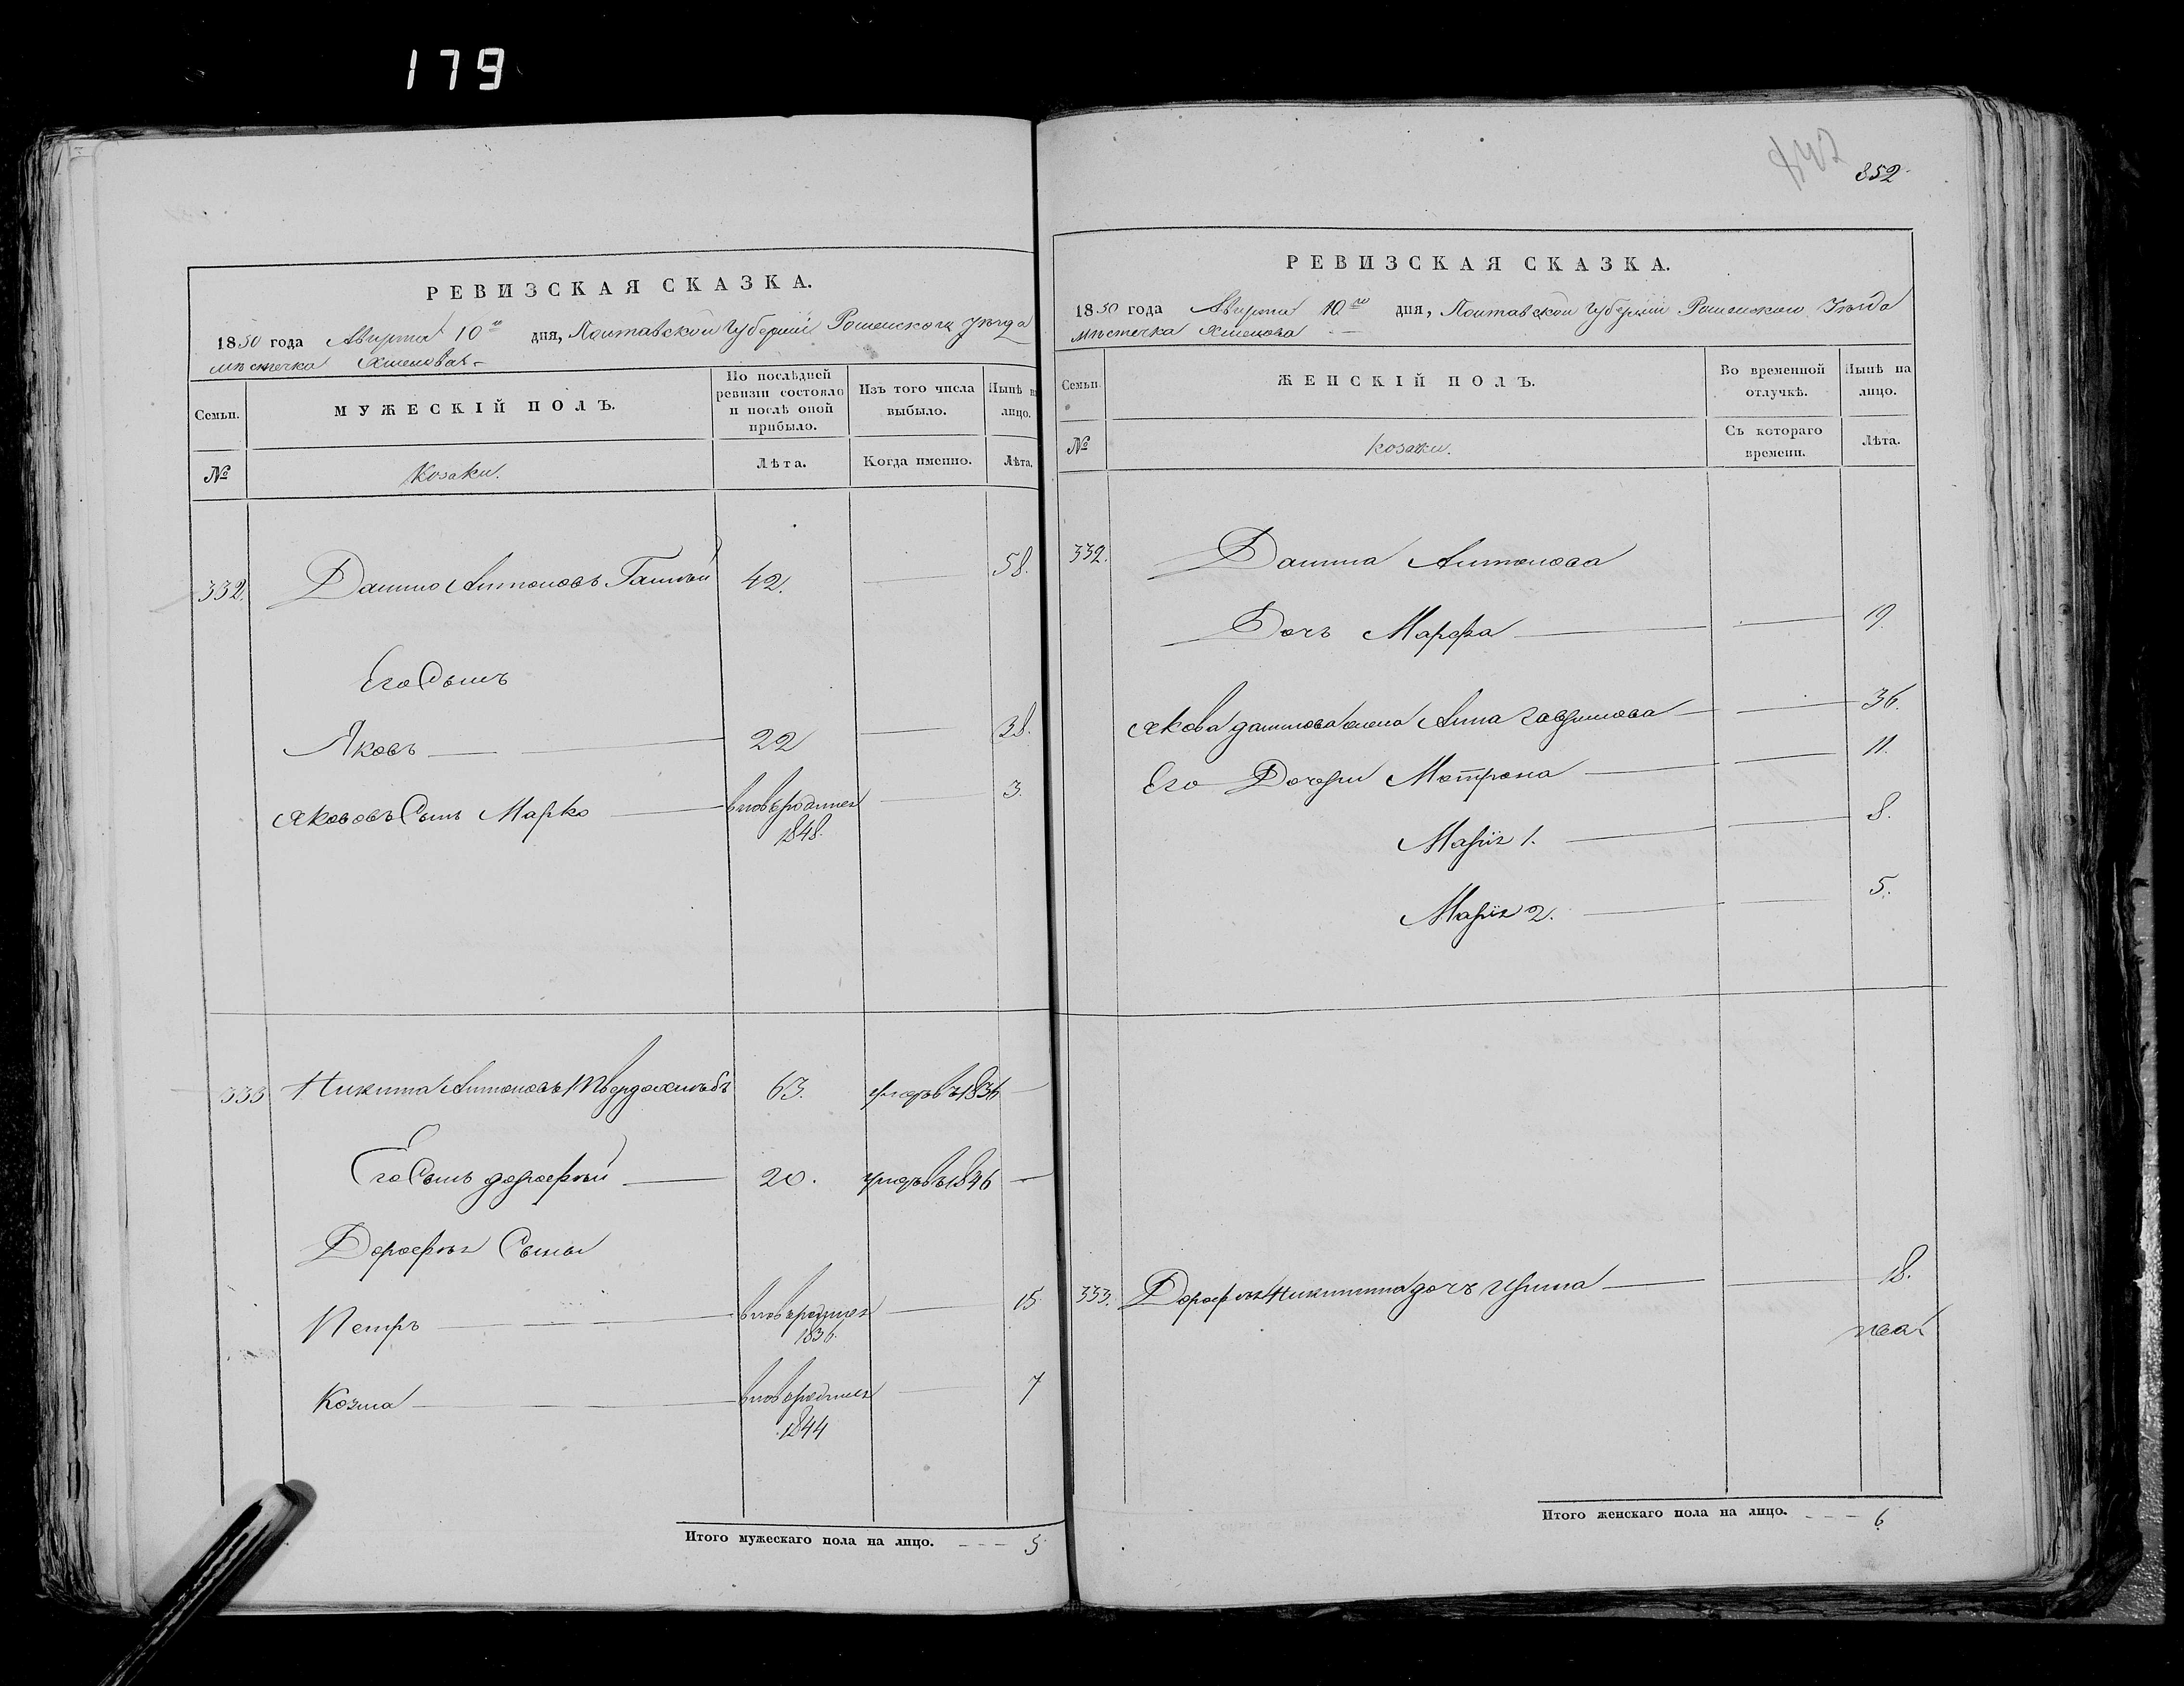 179
РЕВИЗСКАЯ СКАЗКА.
1850 года Августа 10го дня, Полтавской Губерніи Роменского уѣзда
мѣстечка
Семьи.
МУЖЕСКІЙ ПОЛЪ.
По послѣдней ревизіи состояло и послѣ оной прибыло.
Изъ того числа выбыло.
Нынѣ на лицо.
№
Козаки.
Лѣта.
Когда именно.
Лѣта.
332. Данило Антоновъ 42. 58.
Его Сынъ
Яковъ 22 38.
Якововъ Сынъ Марко вновьродился 3.
1848.
333 Никита Антоновъ Твердохлѣбъ 63. умеръ въ 1836
Его Сынъ Дорофѣй 20. умеръ въ 1846
Дорофѣя Сыны
Петръ вновьродился 15
1836.
Козма вновьродился 7
1844
Итого мужескаго пола на лицо. 5
852
РЕВИЗСКАЯ СКАЗКА.
1850 года Августа 10го дня, Полтавской Губерніи Роменского Уѣзда
мѣстечка
Семьи
ЖЕНСКІЙ ПОЛЪ.
Во временной отлучкѣ.
Нынѣ на лицо.
№
козаки.
Съ котораго времени.
Лѣта.
332. Данила Антонова
Дочь Марфа 19
Якова Данилова жена Анна Гаврилова 36.
Его Дочери Мотрона 11.
Марія 1. 8.
Марія 2. 5.
333. Дорофѣя Никитина дочь Ирина 18.
Итого женскаго пола на лицо. 6